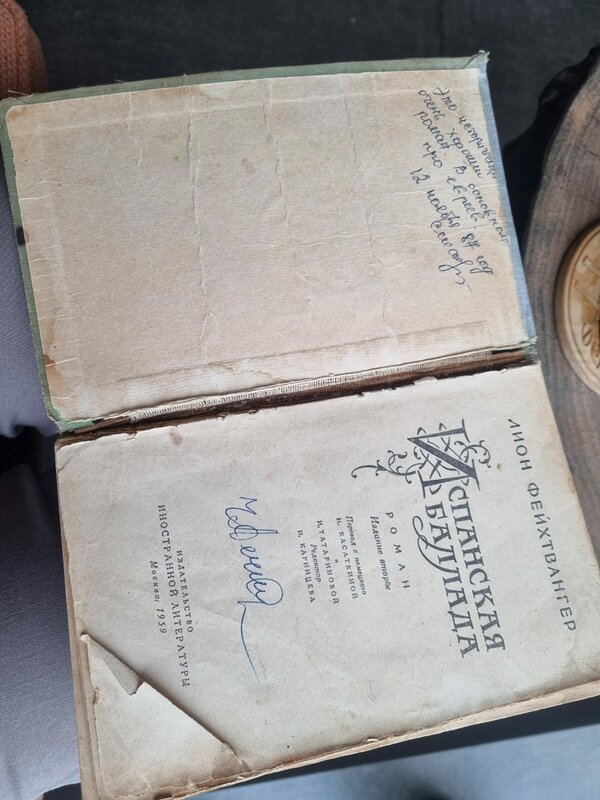 Это исторический
очень хороший
роман в основном
про евреев
12 ноября 87 год
ЛИОН ФЕЙХТВАНГЕР
ИСПАНСКАЯ
БАЛЛАДА
РОМАН
Издание второе
Перевод с немецкого
Н. КАСАТКИНОЙ
и
И. ТАТАРИНОВОЙ
Редактор
Н. КАРИНЦЕВА
ИЗДАТЕЛЬСТВО
ИНОСТРАННОЙ ЛИТЕРАТУРЫ
Москва, 1959